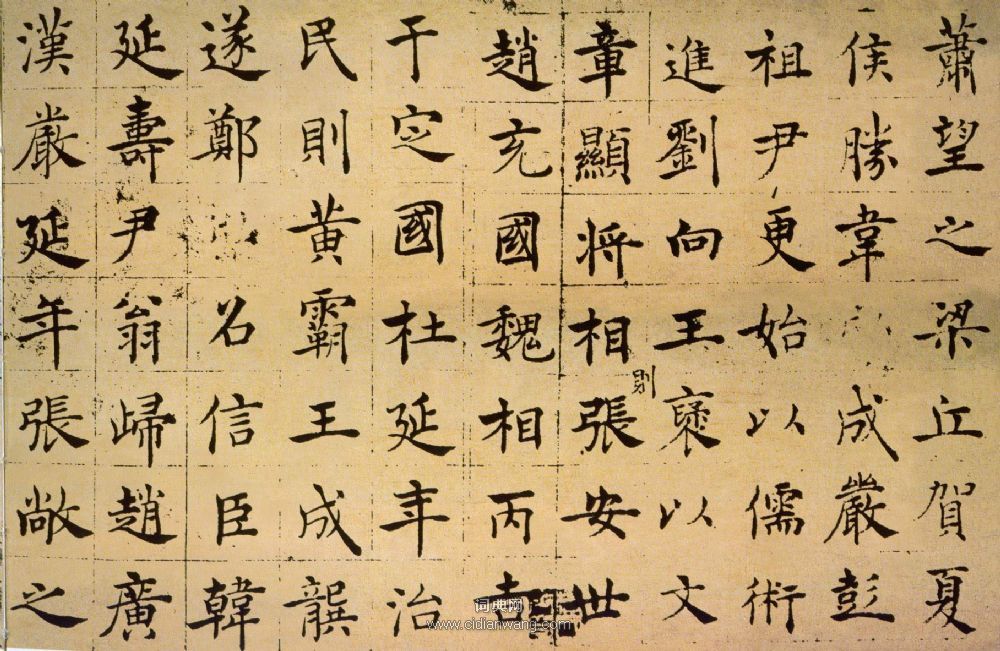 蕭望之梁丘賀夏
侯勝韋成嚴彭
祖尹更始以儒術
進劉向王褒以文
章顯將相則張安世
趙充國魏相丙吉
于定國杜延年治
民則黃霸王成龔
遂鄭召信臣韓
延壽尹翁歸趙廣
漢嚴延年張敞之
词典网
www.cidianwang.com